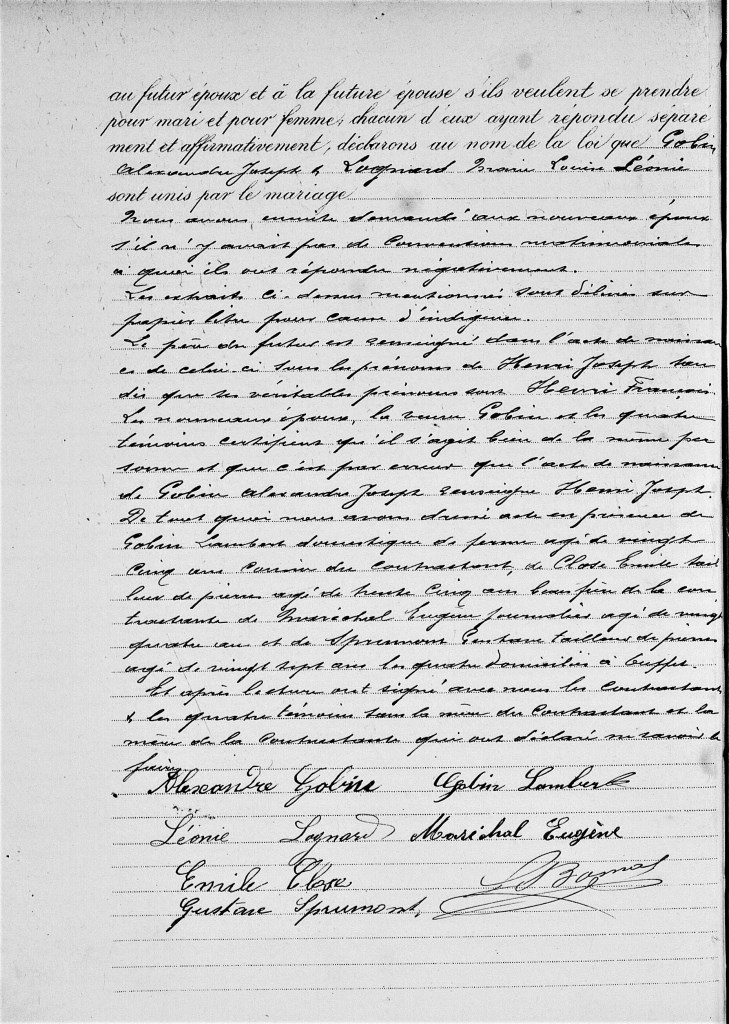 au futur époux et à la future épouse s'ils veulent se prendre
pour mari et pour femme; chacun d'eux ayant répondu séparé
ment et affirmativement, déclarons au nom de la loi que Gobin
Alexandre Joseph & Lognard Marie Louise Léonie
sont unis par le mariage
Nous avons ensuite demandé aux nouveaux époux
s'il n'y avait pas de conventions matrimoniales
à quoi ils ont répondu négativement.
Les extraits ci-dessus mentionnés sont délivrés sur
papier libre pour cause d'indigence.
Le père du futur est renseigné dans l'acte de naissan
ce de celui-ci sous les prénoms de Henri Joseph tan
dis que ses véritables prénoms sont Henri François
Les nouveaux époux, la veuve Gobin et les quatre
témoins certifient qu'il s'agit bien de la même per
sonne et que c'est par erreur que l'acte de naissance
de Gobin Alexandre Joseph renseigne Henri Joseph.
De tout quoi nous avons dressé acte en présence de
Gobin Lambert domestique de ferme agé de vingt
cinq ans cousin du contractant, de Close Emile tail
leur de pierres agé de trente cinq ans beau frère de la con
tractante de Maréchal Eugène journalier agé de vingt
quatre ans et de Sprumont Gustave tailleur de pierres
agé de vingt sept ans les quatre domiciliés à
Et après lecture ont signé avec nous les contractants
& les quatre témoins sauf la mère du contractant et la
mère de la contractante qui ont déclaré ne savoir le
faire
Alexandre Gobin Gobin Lambert
Léonie Lognard Maréchal Eugène
Emile Close
Gustave Sprumont,